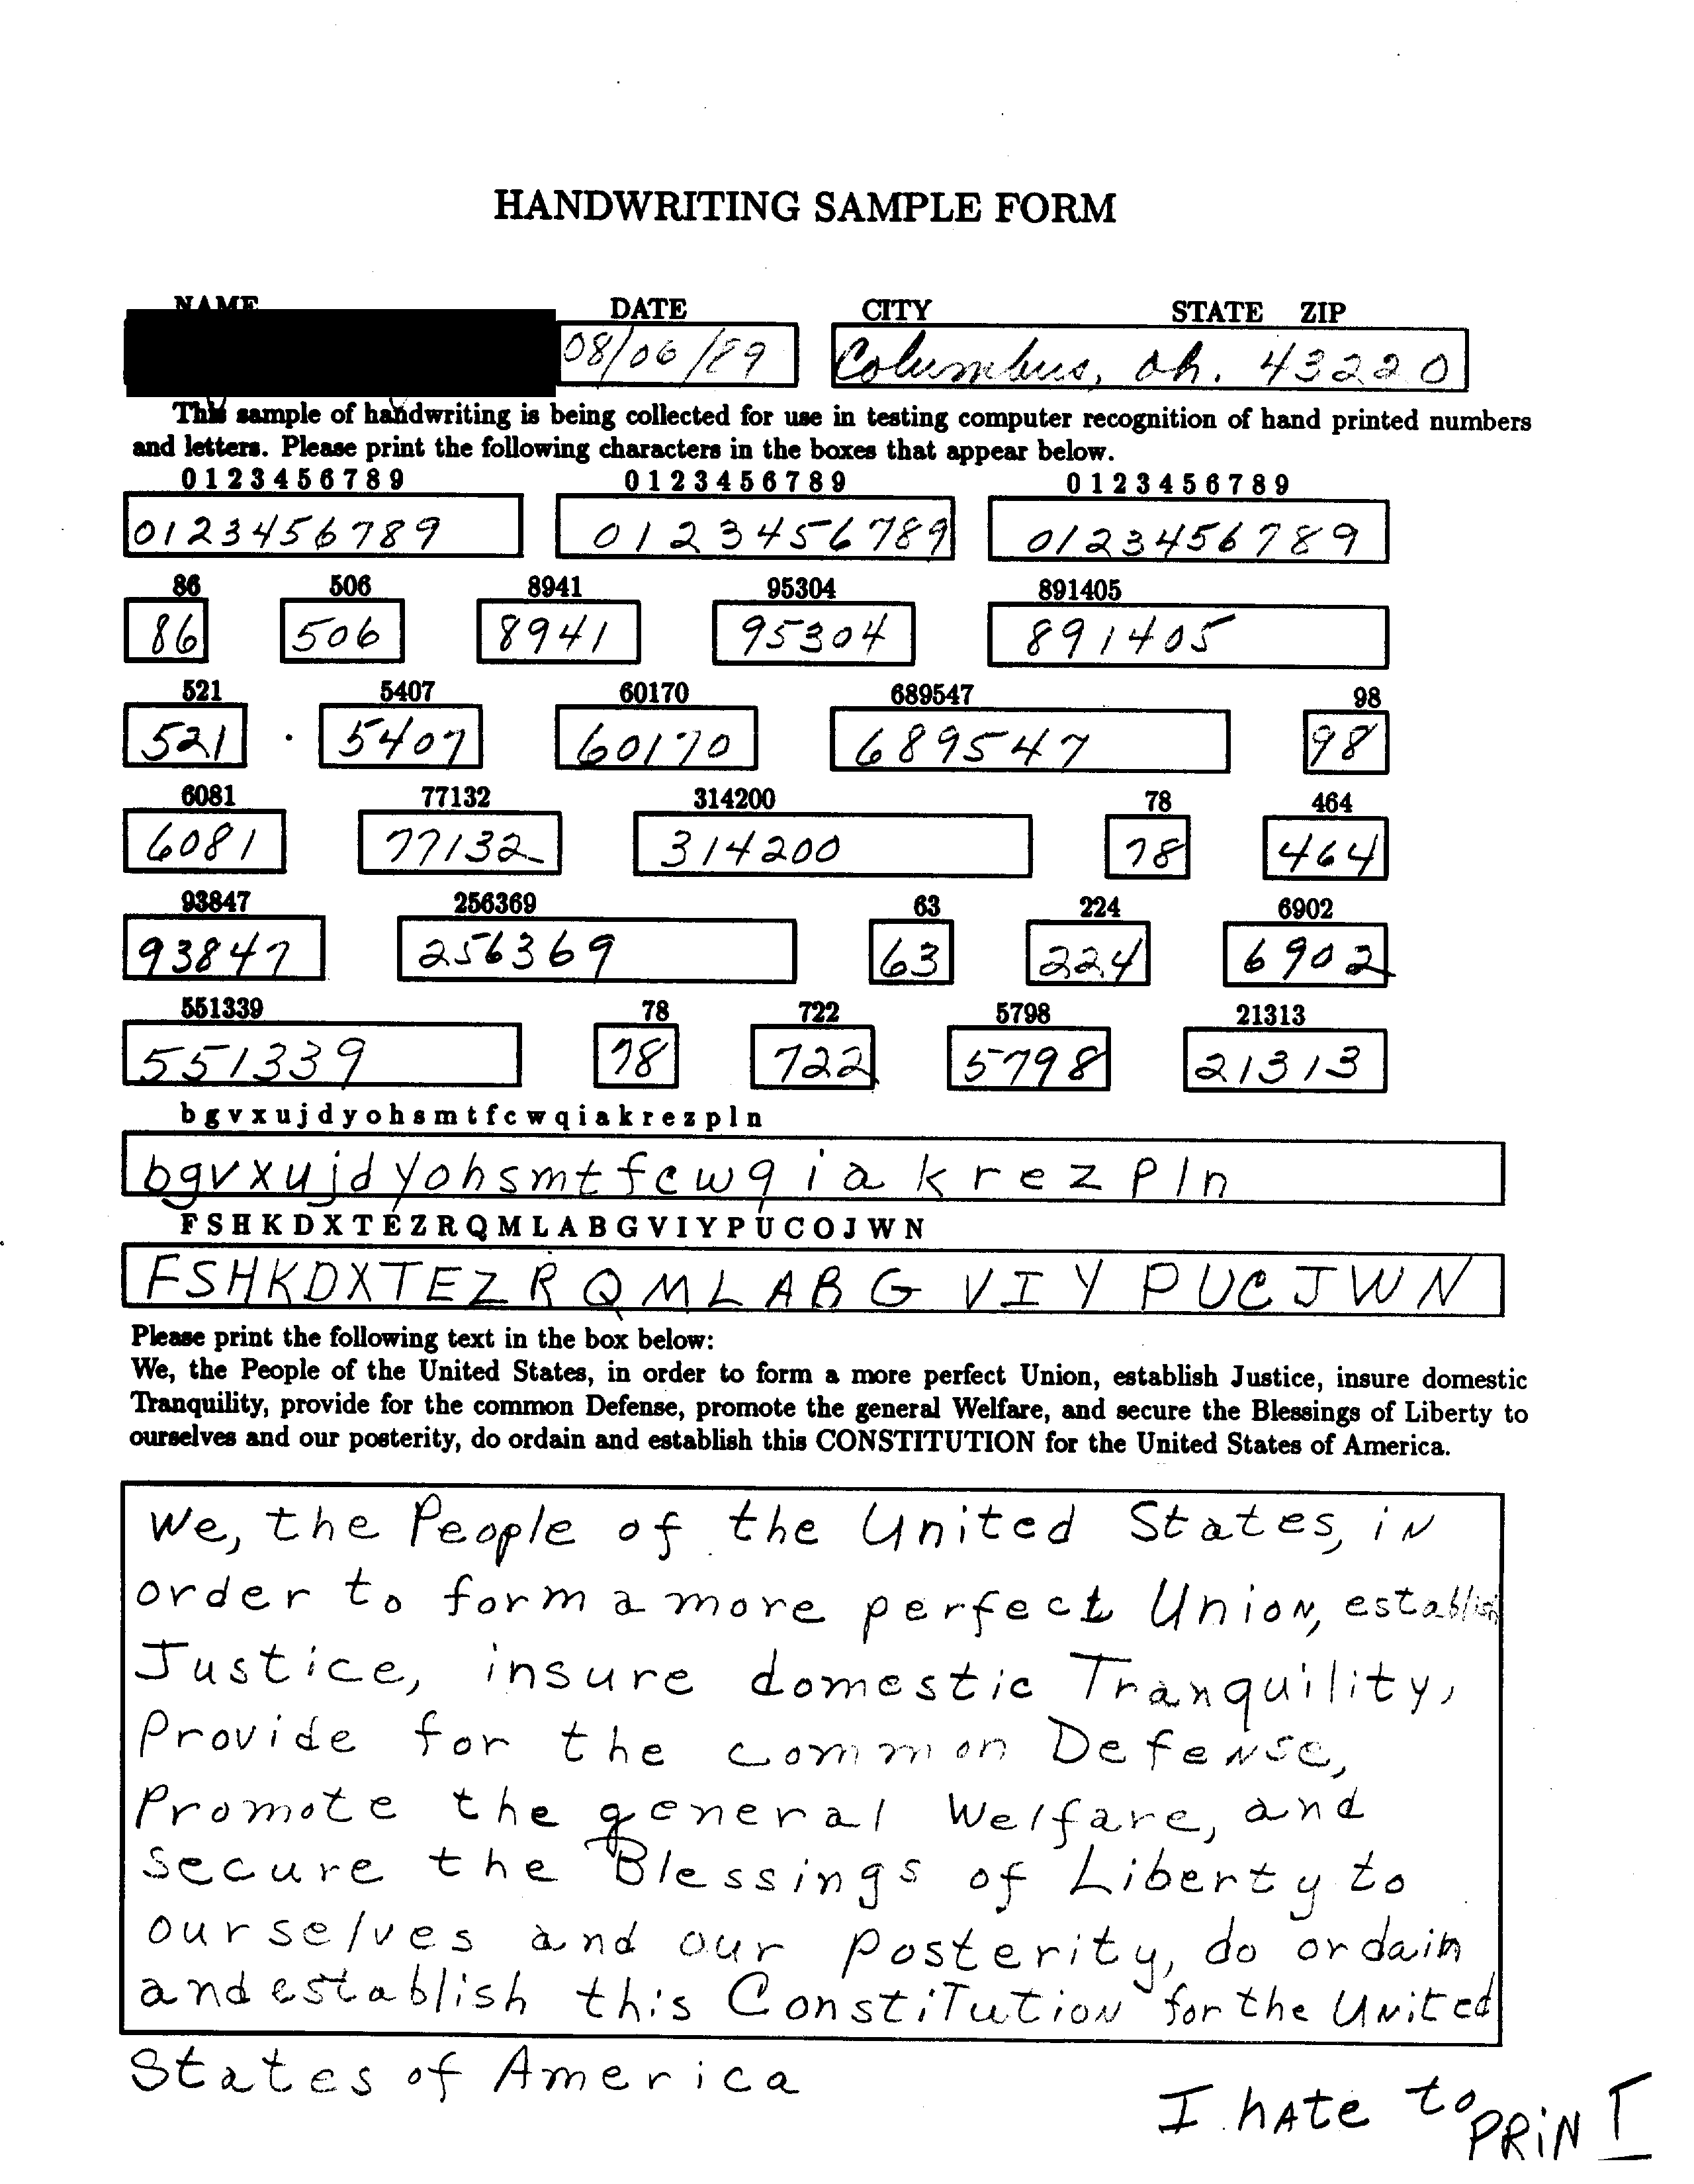 HANDWRITING SAMPLE FORM
NAME DATE CITY STATE ZIP
08/06/89 Columbus, Oh. 43220
This sample of handwriting is being collected for use in testing computer recognition of hand printed numbers
and letters. Please print the following characters in the boxes that appear below.
0 1 2 3 4 5 6 7 8 9 0 1 2 3 4 5 6 7 8 9 0 1 2 3 4 5 6 7 8 9
0123456789 0123456789 0123456789
86 506 8941 95304 891405
86 506 8941 95304 891405
521 5407 60170 689547 98
521 5407 60170 689547 98
6081 77132 314200 78 464
6081 77132 314200 78 464
93847 256369 63 224 6902
93847 256369 63 224 6902
551339 78 722 5798 21313
551339 78 722 5798 21313
b g v x u j d y o h s m t f c w q i a k r e z p l n
bgvxujdyohsmtfcwqiakrezpln
F S H K D X T E Z R Q M L A B G V I Y P U C O J W N
FSHKDXTEZRQMLABGVIYPUCJWN
Please print the following text in the box below:
We, the People of the United States, in order to form a more perfect Union, establish Justice, insure domestic
Tranquility, provide for the common Defense, promote the general Welfare, and secure the Blessings of Liberty to
ourselves and our posterity, do ordain and establish this CONSTITUTION for the United States of America.
We, the People of the United States, in
order to form a more perfect Union, establish
Justice, insure domestic Tranquility,
Provide for the common Defense,
Promote the general Welfare, and
secure the Blessings of Liberty to
ourselves and our posterity, do ordain
and establish this Constitution for the United
States of America
I hate to PRINT